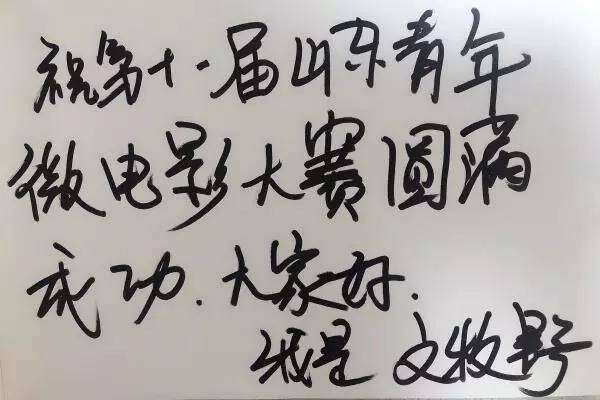 祝第十一届山东青年
微电影大赛圆满
成功.大家好.
我是 文牧野